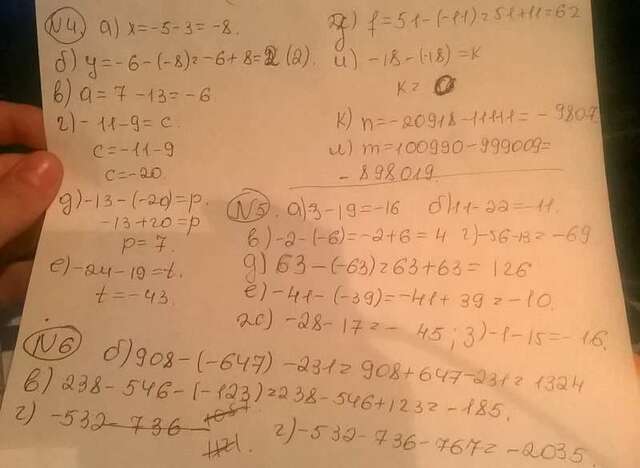 N4. а) x=-5-3=-8.
б) y=-6-(-8)=-6+8=2 (2).
в) a=7-13=-6
г) -11-9=c.
c=-11-9
c=-20.
д) -13-(-20)=p.
-13+20=p
p=7.
е) -24-19=t.
t=-43.
ж) f=51-(-11)=51+11=62
и) -18-(-18)=k
k=0
к) n=-20918-11111=-9807
л) m=100990-999009=
-898019.
N5. а) 3-19=-16 б) 11-22=-11.
в) -2-(-6)=-2+6=4 г) -56-13=-69
д) 63-(-63)=63+63=126
е) -41-(-39)=-41+39=-10.
ж) -28-17=-45; з) -1-15=-16.
N6 б) 908-(-647)-231=908+647-231=1324
в) 238-546-(-123)=238-546+123=-185.
г) -532-736
г) -532-736-767=-2035.